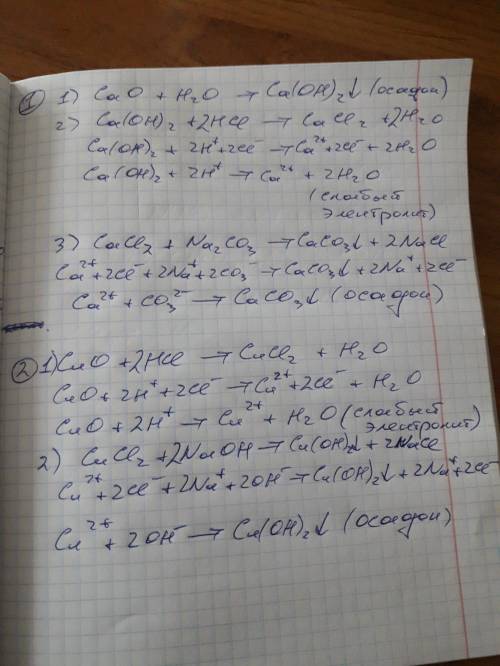 ① 1) CaO + H₂O → Ca(OH)₂↓ (осадок)
2) Ca(OH)₂ + 2HCl → CaCl₂ + 2H₂O
Ca(OH)₂ + 2H⁺ + 2Cl⁻ → Ca²⁺ + 2Cl⁻ + 2H₂O
Ca(OH)₂ + 2H⁺ → Ca²⁺ + 2H₂O
(слабый
электролит)
3) CaCl₂ + Na₂CO₃ → CaCO₃↓ + 2NaCl
Ca²⁺ + 2Cl⁻ + 2Na⁺ + 2CO₃⁻ → CaCO₃↓ + 2Na⁺ + 2Cl⁻
Ca²⁺ + CO₃²⁻ → CaCO₃↓ (осадок)
② 1) CuO + 2HCl → CuCl₂ + H₂O
CuO + 2H⁺ + 2Cl⁻ → Cu²⁺ + 2Cl⁻ + H₂O
CuO + 2H⁺ → Cu²⁺ + H₂O (слабый
электролит)
2) CuCl₂ + 2NaOH → Cu(OH)₂↓ + 2NaCl
Cu²⁺ + 2Cl⁻ + 2Na⁺ + 2OH⁻ → Cu(OH)₂↓ + 2Na⁺ + 2Cl⁻
Cu²⁺ + 2OH⁻ → Cu(OH)₂↓ (осадок)